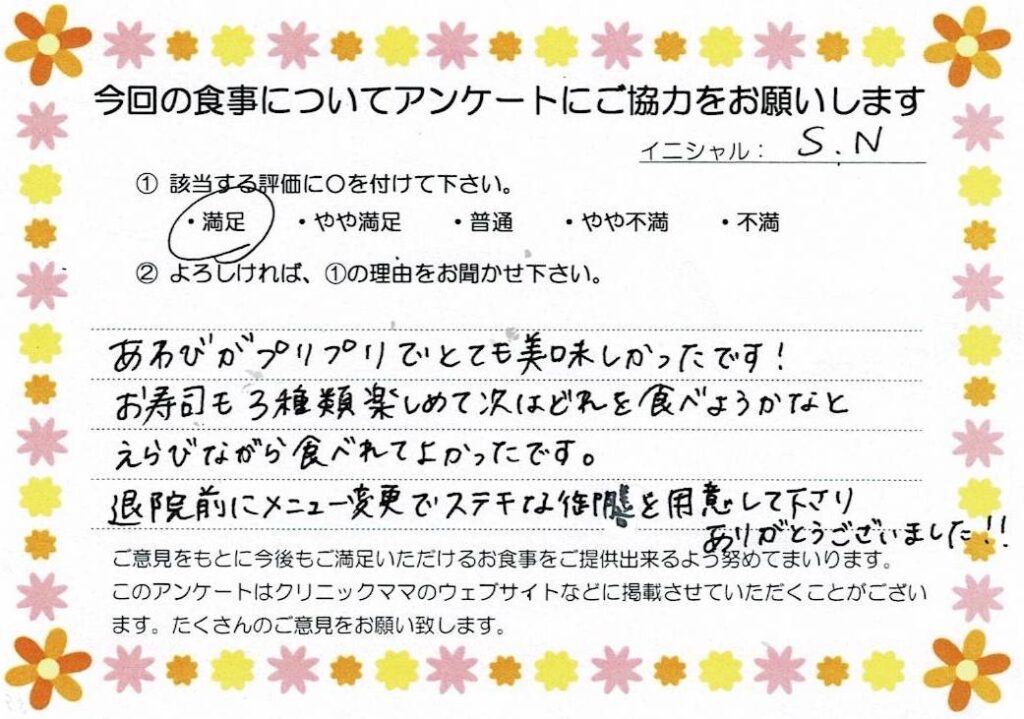 今回の食事についてアンケートにご協力をお願いします
イニシャル： S.N
① 該当する評価に〇を付けて下さい。
・満足 ・やや満足 ・普通 ・やや不満 ・不満
② よろしければ、①の理由をお聞かせ下さい。
あわびがプリプリでとても美味しかったです！
お寿司も3種類楽しめて次はどれを食べようかなと
えらびながら食べれてよかったです。
退院前にメニュー変更でステキな御膳を用意して下さり
ありがとうございました!!
ご意見をもとに今後もご満足いただけるお食事をご提供出来るよう努めてまいります。
このアンケートはクリニックママのウェブサイトなどに掲載させていただくことがござい
ます。たくさんのご意見をお願い致します。